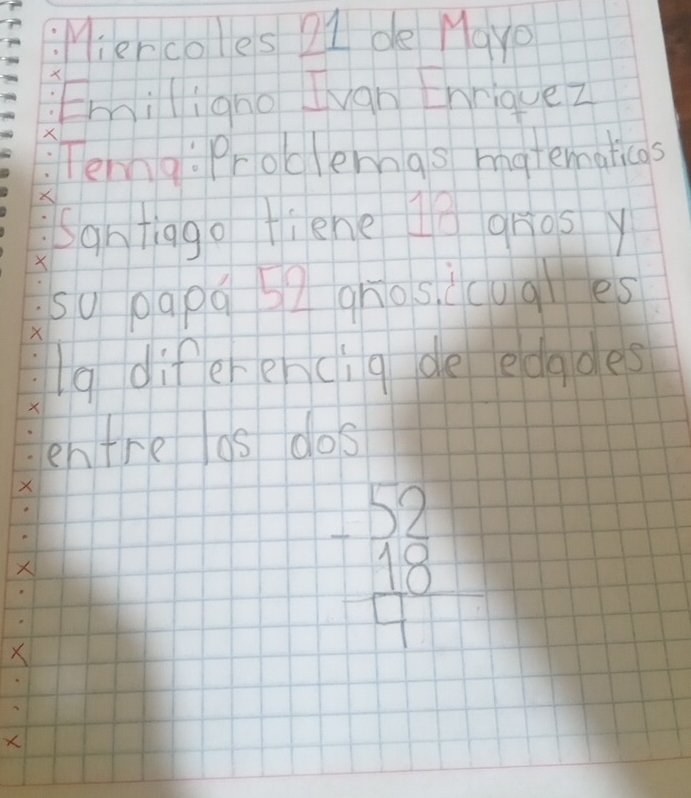 Miercoles 21 de Mayo
Emiliano Ivan Enriquez
Tema: Problemas matematicos
Santiago tiene 18 años y
su papá 52 años.¿cual es
la diferencia de edades
entre los dos
52
- 18
9